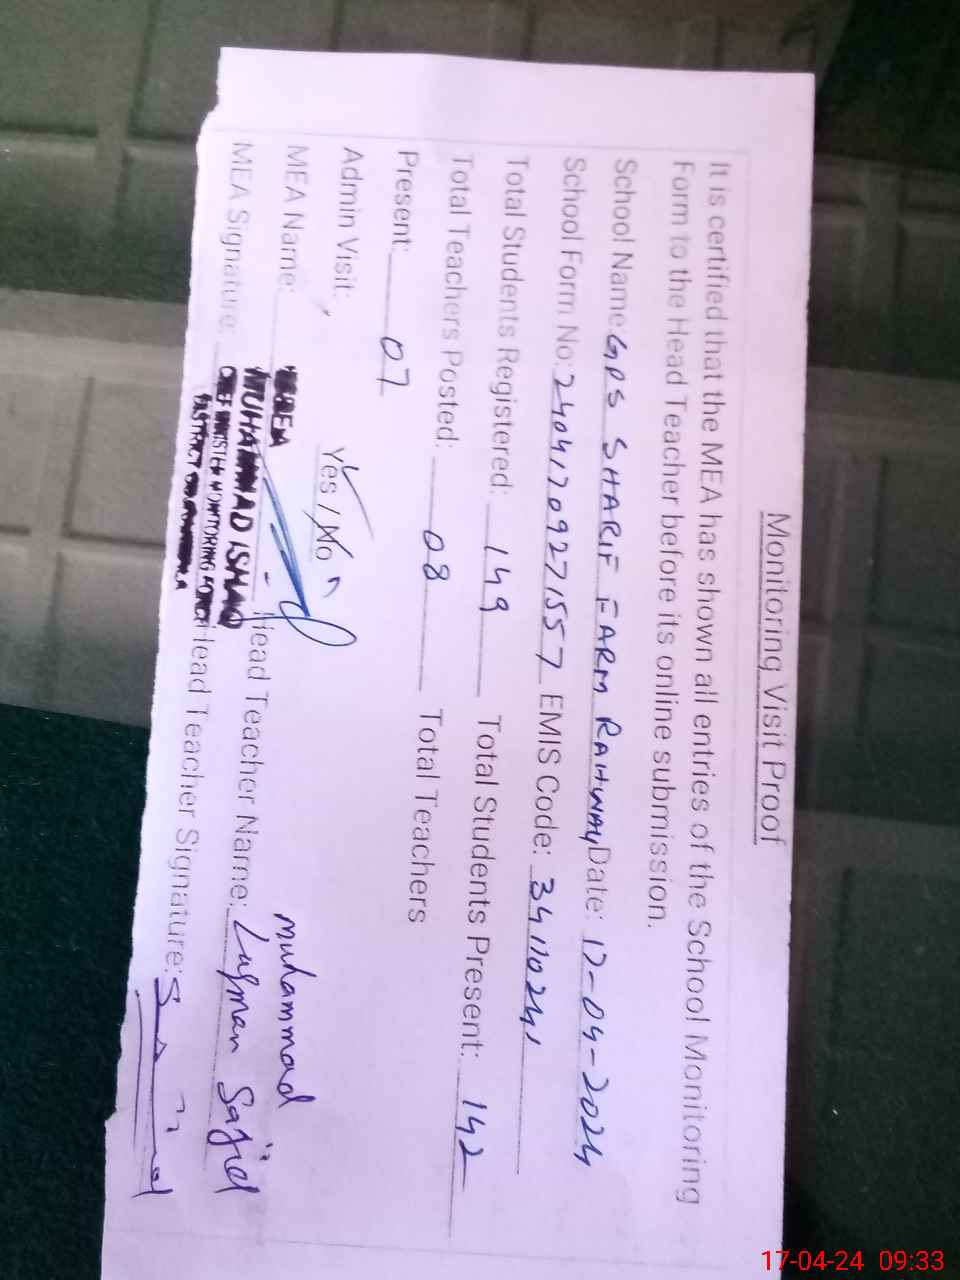 Monitoring Visit Proof
It is certified that the MEA has shown all entries of the School Monitoring
Form to the Head Teacher before its online submission.
School Name: GPS SHARIF FARM RAHWAY Date: 17-04-2024
School Form No: 2404120927157 EMIS Code: 34110241
Total Students Registered: 149 Total Students Present: 142
Total Teachers Posted: 08 Total Teachers
Present: 07
Admin Visit: Yes / No
MEA Name: MUHAMMAD ISHAQ Head Teacher Name: Muhammad Luqman Sajid
MEA Signature: CHIEF MINISTER MONITORING FORCE Head Teacher Signature:
DISTRICT
17-04-24 09:33